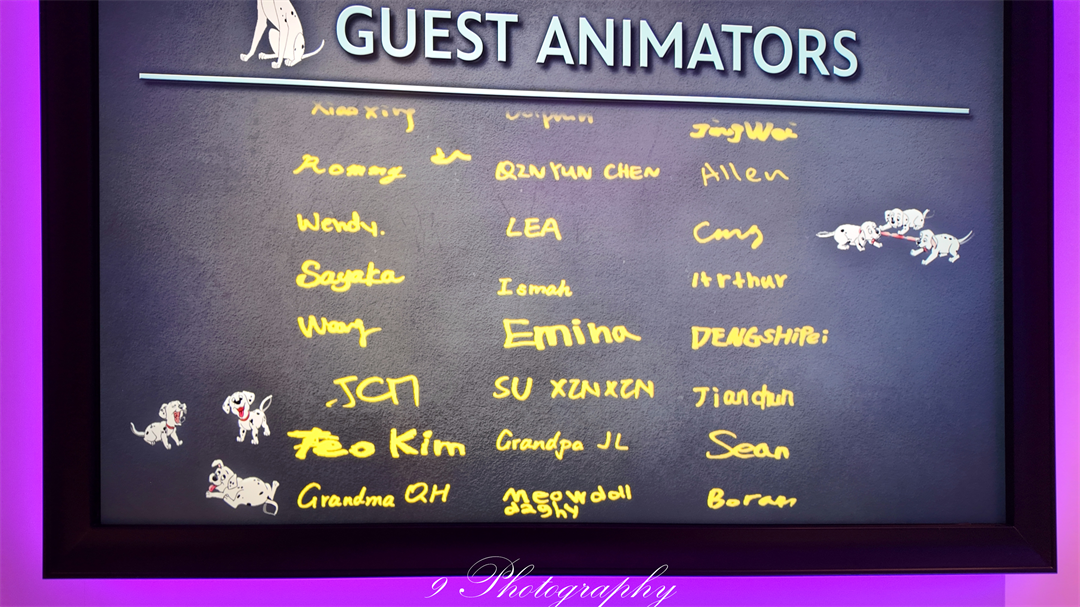 GUEST ANIMATORS
Xiao xing JingWei
Rommy QZNYUN CHEN Allen
Wendy. LEA
Sayaka Ismah Arthur
Wang Emina DENGSHiPei
JCM SU XZNXZN Jianchun
Teo Kim Grandpa JL Sean
Grandma QH Meowdoll Boram
dashy
9 Photography